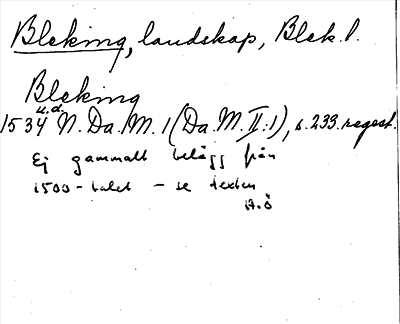 Bleking, landskap, Blek. l.
Bleking
u.d.
1534 N. Da. M. 1 (Da. M. II:1), s. 233. regest.
Ej gammalt belägg från
1500-talet – se texten
A.Ö